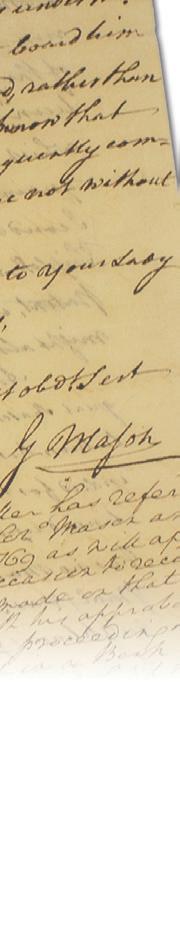 board him
rather than
know that
quently com=
not without
to your Lady
st obdt. Sert
G Mason
has refer
Mason
769 as will ap
occasion to reco
made on that
his approba
proceeding
in a Book